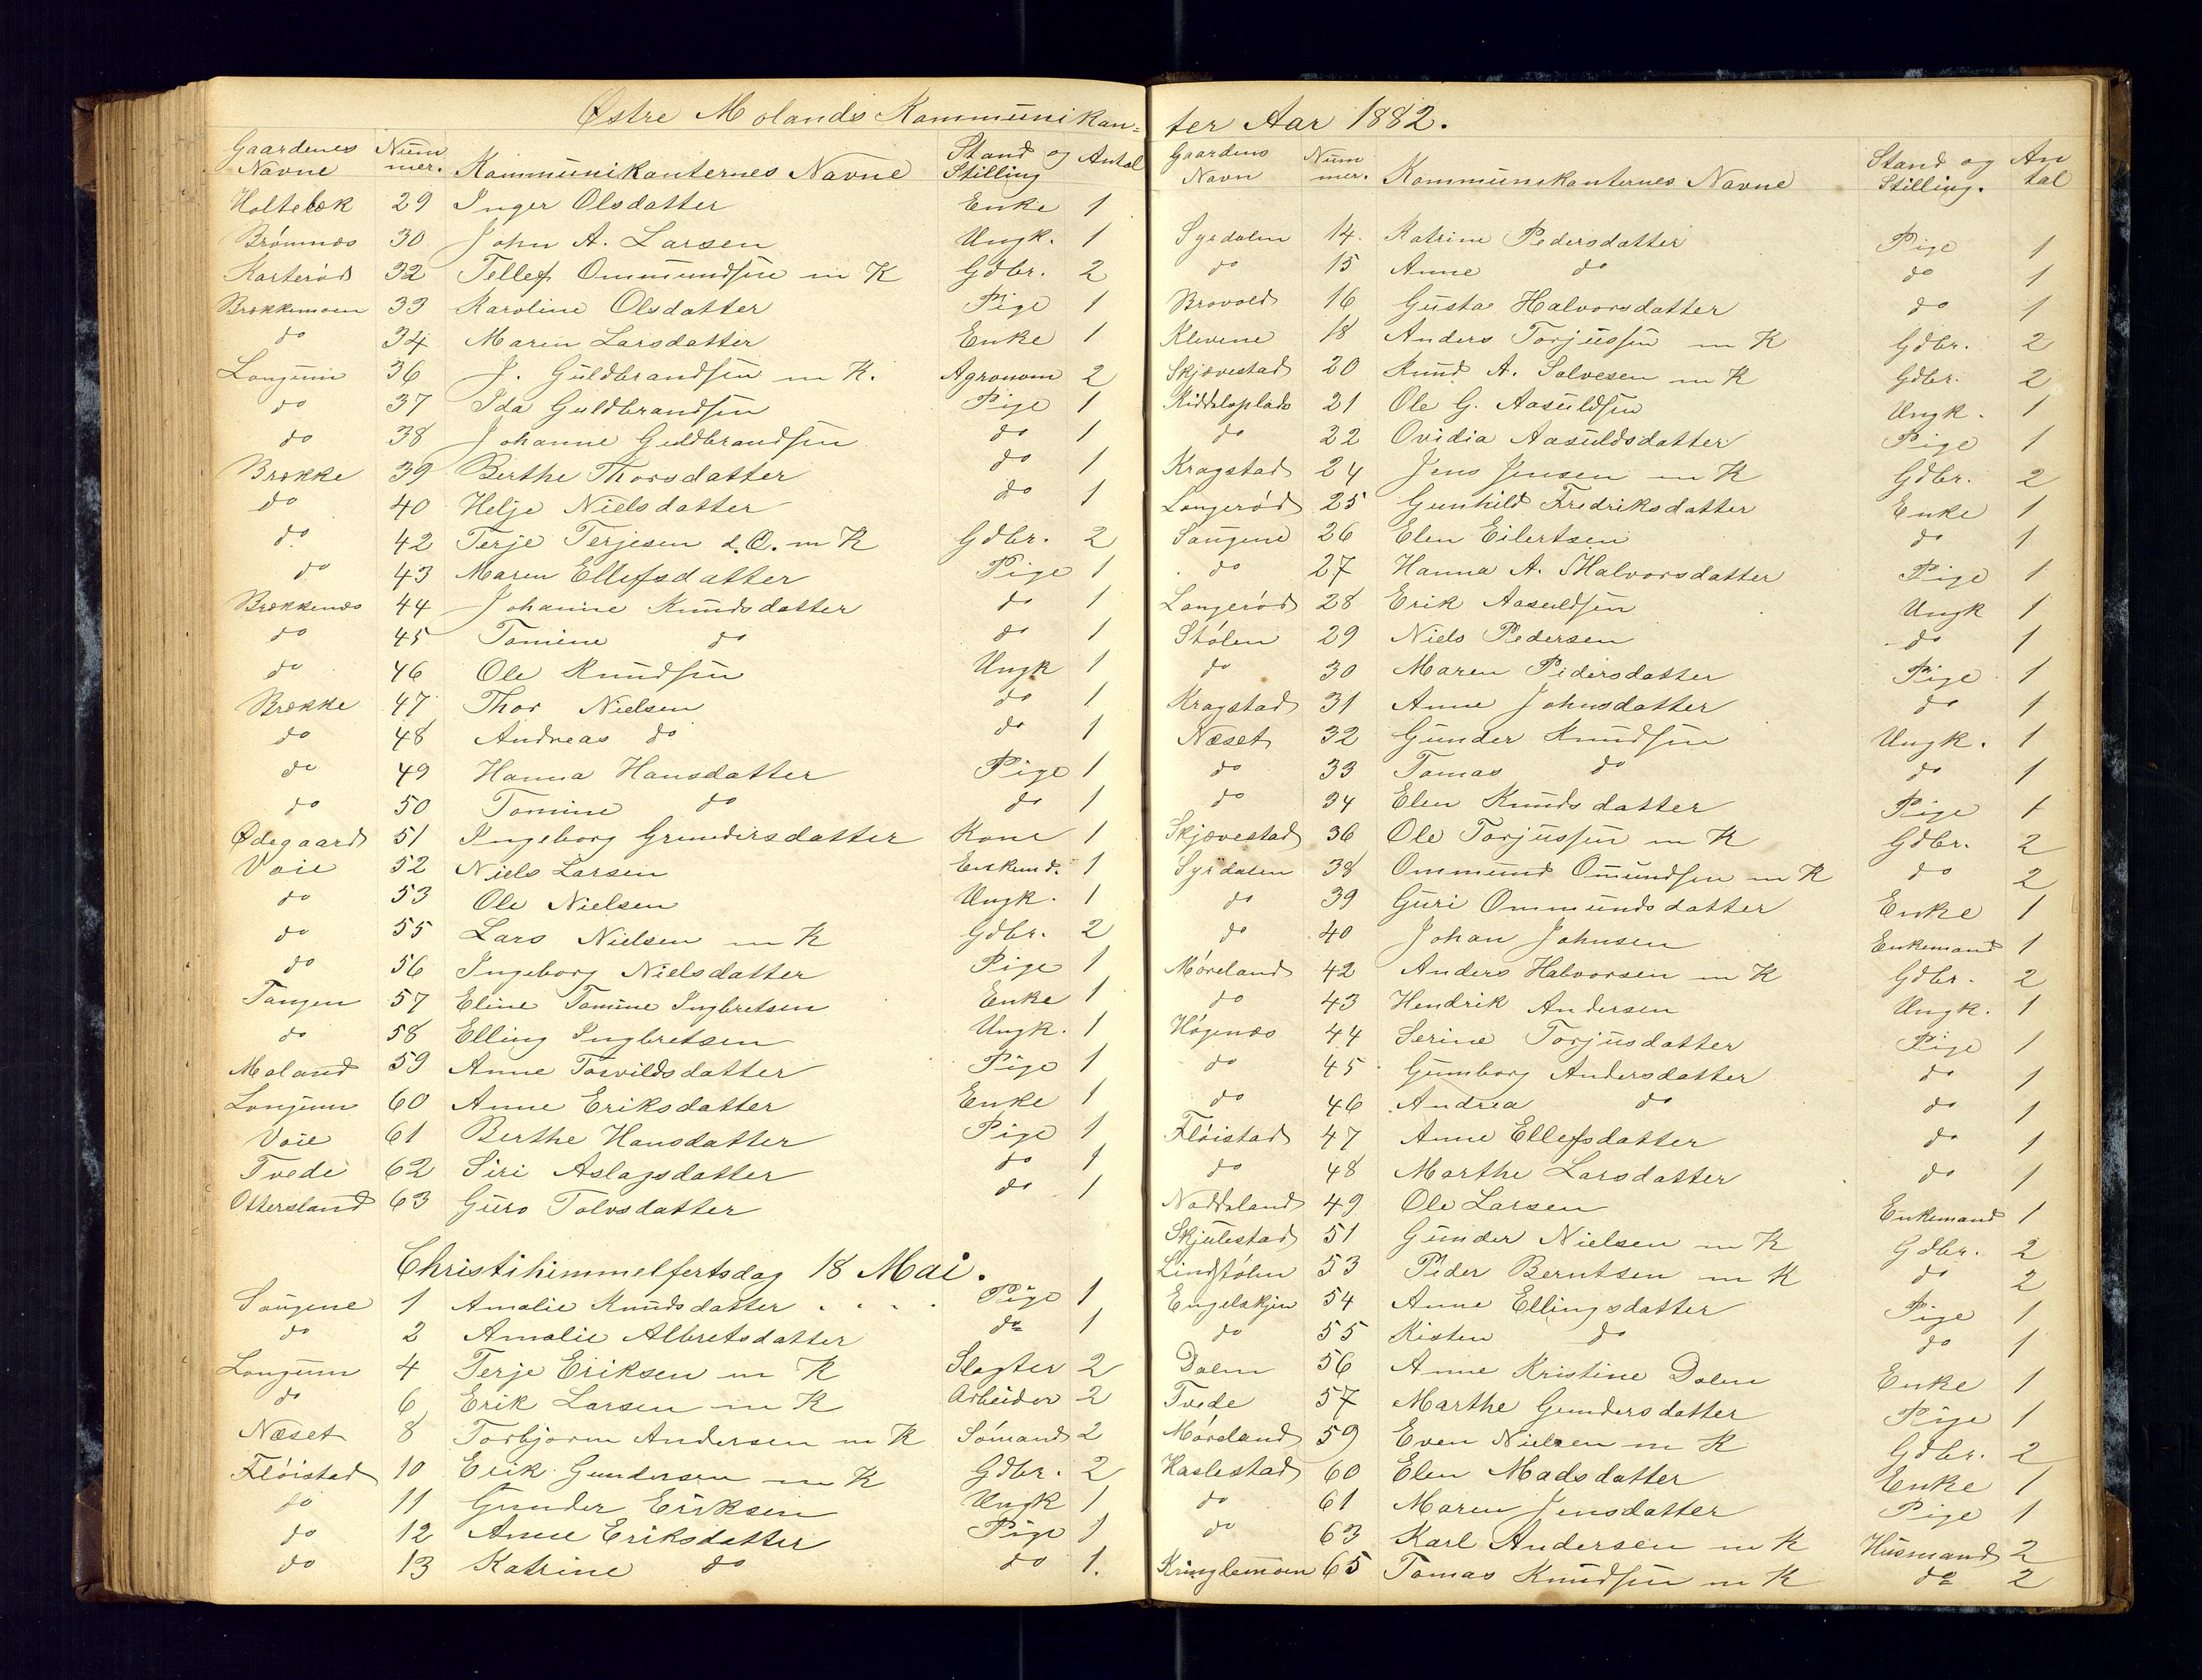 Østre Molands Kommunikan=
Gaardenes Navne Num mer. Kommunikanternes Navne Stand og Stilling Antal
Holtebæk 29 Inger Olsdatter Enke 1
Brømnæs 30 John A. Larsen Ungk. 1
Karterød 32 Tellef Ommundsen m K Gdbr. 2
Brækkemoen 33 Karoline Olsdatter Pige 1
do 34 Maren Larsdatter Enke 1
Longum 36 J. Guldbrandsen m K. Agronom 2
do 37 Ida Guldbrandsen Pige 1
do 38 Johanne Guldbrandsen do 1
Brække 39 Berthe Thorsdatter do 1
do 40 Helje Nielsdatter do 1
do 42 Terje Terjesen d. Æ. m K Gdbr. 2
do 43 Maren Ellefsdatter Pige 1
Brækkenæs 44 Johanne Knudsdatter do 1
do 45 Tomine do do 1
do 46 Ole Knudsen Ungk 1
Brække 47 Thor Nielsen do 1
do 48 Andreas do do 1
do 49 Hanna Hansdatter Pige 1
do 50 Tomine do do 1
Ødegaard 51 Ingeborg Gundersdatter Kone 1
Voie 52 Niels Larsen Enkemd. 1
do 53 Ole Nielsen Ungk. 1
do 55 Lars Nielsen m K Gdbr. 2
do 56 Ingeborg Nielsdatter Pige 1
Tangen 57 Eline Tomine Ingbretsen Enke 1
do 58 Elling Ingbretsen Ungk. 1
Moland 59 Anne Tosvildsdatter Pige 1
Longum 60 Anne Eriksdatter Enke 1
Voie 61 Berthe Hansdatter Pige 1
Tvede 62 Siri Aslagsdatter do 1
Ottersland 63 Guro Tolvsdatter do 1
Christihimmelfertsdag 18 Mai.
Saugene 1 Amalie Knudsdatter . . . . Pige 1
do 2 Amalie Albretsdatter do 1
Longum 4 Terje Eriksen m K Slagter 2
do 6 Erik Larsen m K Arbeider 2
Næset 8 Torbjorn Andersen m K Sømand 2
Fløistad 10 Erik Gundersen m K Gdbr. 2
do 11 Gunder Eriksen Ungk 1
do 12 Anne Eriksdatter Pige 1
do 13 Katrine do do 1.
ter Aar 1882.
Gaardens Navn Num mer. Kommunikanternes Navne Stand og Stilling. An tal
Syrdalen 14. Katrine Pedersdatter Pige 1
do 15 Anne do do 1
Brovold 16 Gusta Halvorsdatter do 1
Klevene 18 Anders Torjussen m K Gdbr. 2
Skjævestad 20 Knud A. Salvesen m K Gdbr. 2
Kiddelsplads 21 Ole G. Aasuldsen Ungk. 1
do 22 Ovidia Aasuldsdatter Pige 1
Kragstad 24 Jens Jensen m K Gdbr. 2
Longerød 25 Gunhild Fredriksdatter Enke 1
Saugene 26 Elen Eilertsen do 1
do 27 Hanna A. Halvorsdatter Pige 1
Longerød 28 Erik Aasuldsen Ungk 1
Stølen 29 Niels Pedersen do 1
do 30 Maren Pedersdatter Pige 1
Kragstad 31 Anne Johnsdatter do 1
Næset 32 Gunder Knudsen Ungk. 1
do 33 Tomas do do 1
do 34 Elen Knudsdatter Pige 1
Skjævestad 36 Ole Torjussen m K Gdbr. 2
Syrdalen 38 Ommund Omundsen m K do 2
do 39 Guri Ommundsdatter Enke 1
do 40 Johan Johnsen Enkemand 1
Møreland 42 Anders Halvorsen m K Gdbr. 2
do 43 Hendrik Andersen Ungk. 1
Høgenæs 44 Serine Torjusdatter Pige 1
do 45 Gumborg Andersdatter do 1
do 46 Andrea do do 1
Fløistad 47 Anne Ellefsdatter do 1
do 48 Marthe Larsdatter do 1
Noddeland 49 Ole Larsen Enkemand 1
Skjulestad 51 Gunder Nielsen m K Gdbr. 2
Lindstølen 53 Peder Berntsen m K do 2
Engelskjen 54 Anne Ellingsdatter Pige 1
do 55 Kisten do do 1
Dalen 56 Anne Kristine Dalen Enke 1
Tvede 57 Marthe Gundersdatter Pige 1
Møreland 59 Even Nielsen m K Gdbr. 2
Haslestad 60 Elen Madsdatter Enke 1
do 61 Maren Jensdatter Pige 1
do 63 Karl Andersen m K Husmand 2
Kringlemoen 65 Tomas Knudsen m K do 2